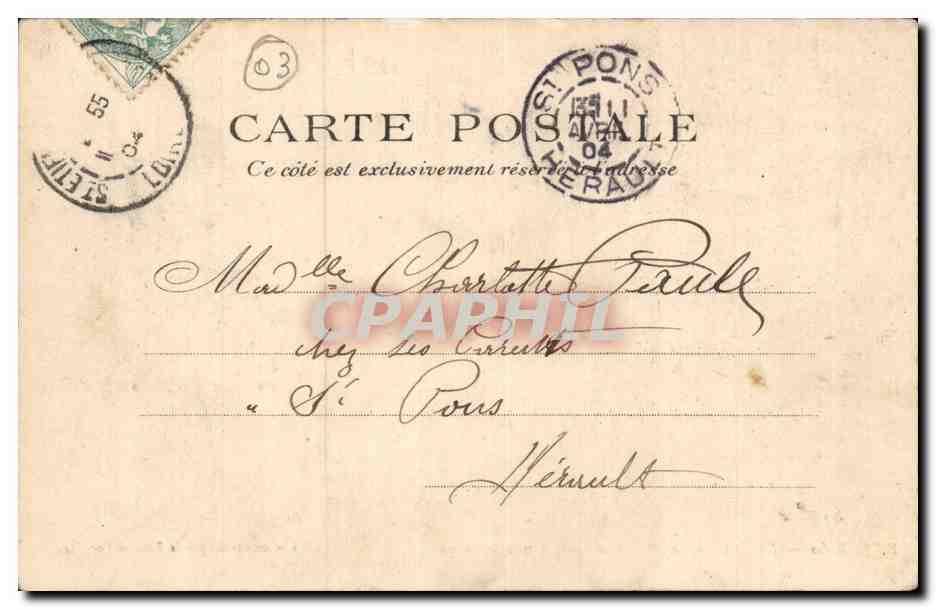 03
ST PONS
11
AVRIL
04
HERAULT
55
11
04
ST ETIE
LOIRE
CARTE POSTALE
Ce côté est exclusivement réservé à l'adresse
Madlle Charlotte Paule
CPAPHIL
chez Ses Parents
" St Pons
Hérault